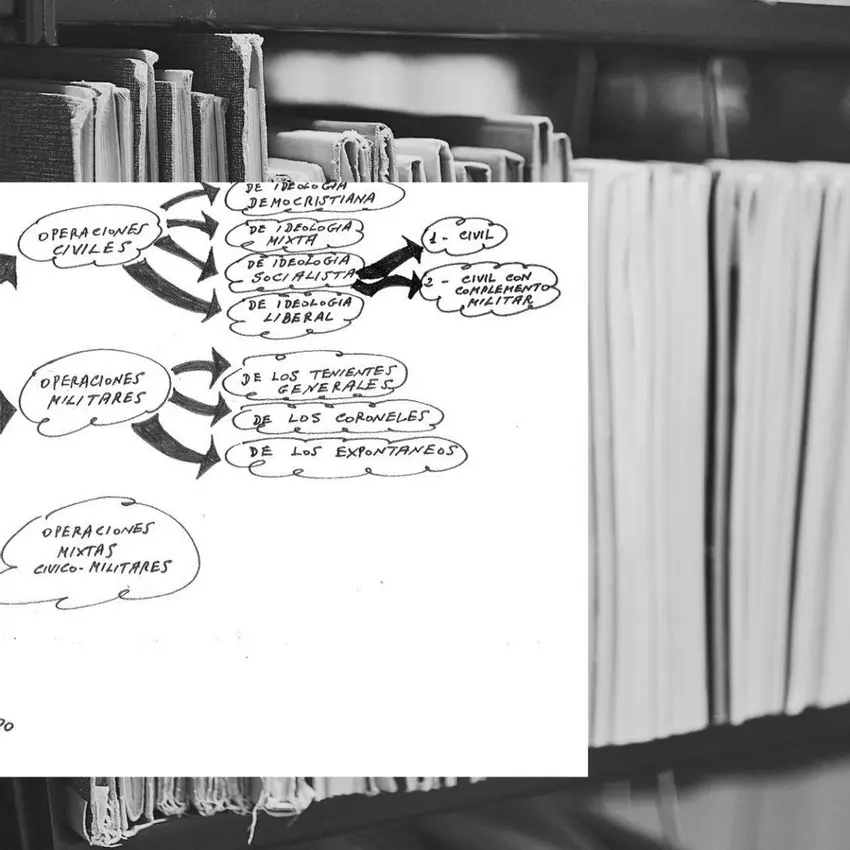 DE IDEOLOGIA
DEMOCRISTIANA
OPERACIONES
CIVILES
DE IDEOLOGIA
MIXTA
DE IDEOLOGIA
SOCIALISTA
DE IDEOLOGIA
LIBERAL
1 - CIVIL
2 - CIVIL CON
COMPLEMENTO
MILITAR
OPERACIONES
MILITARES
DE LOS TENIENTES
GENERALES
DE LOS CORONELES
DE LOS EXPONTANEOS
OPERACIONES
MIXTAS
CIVICO-MILITARES